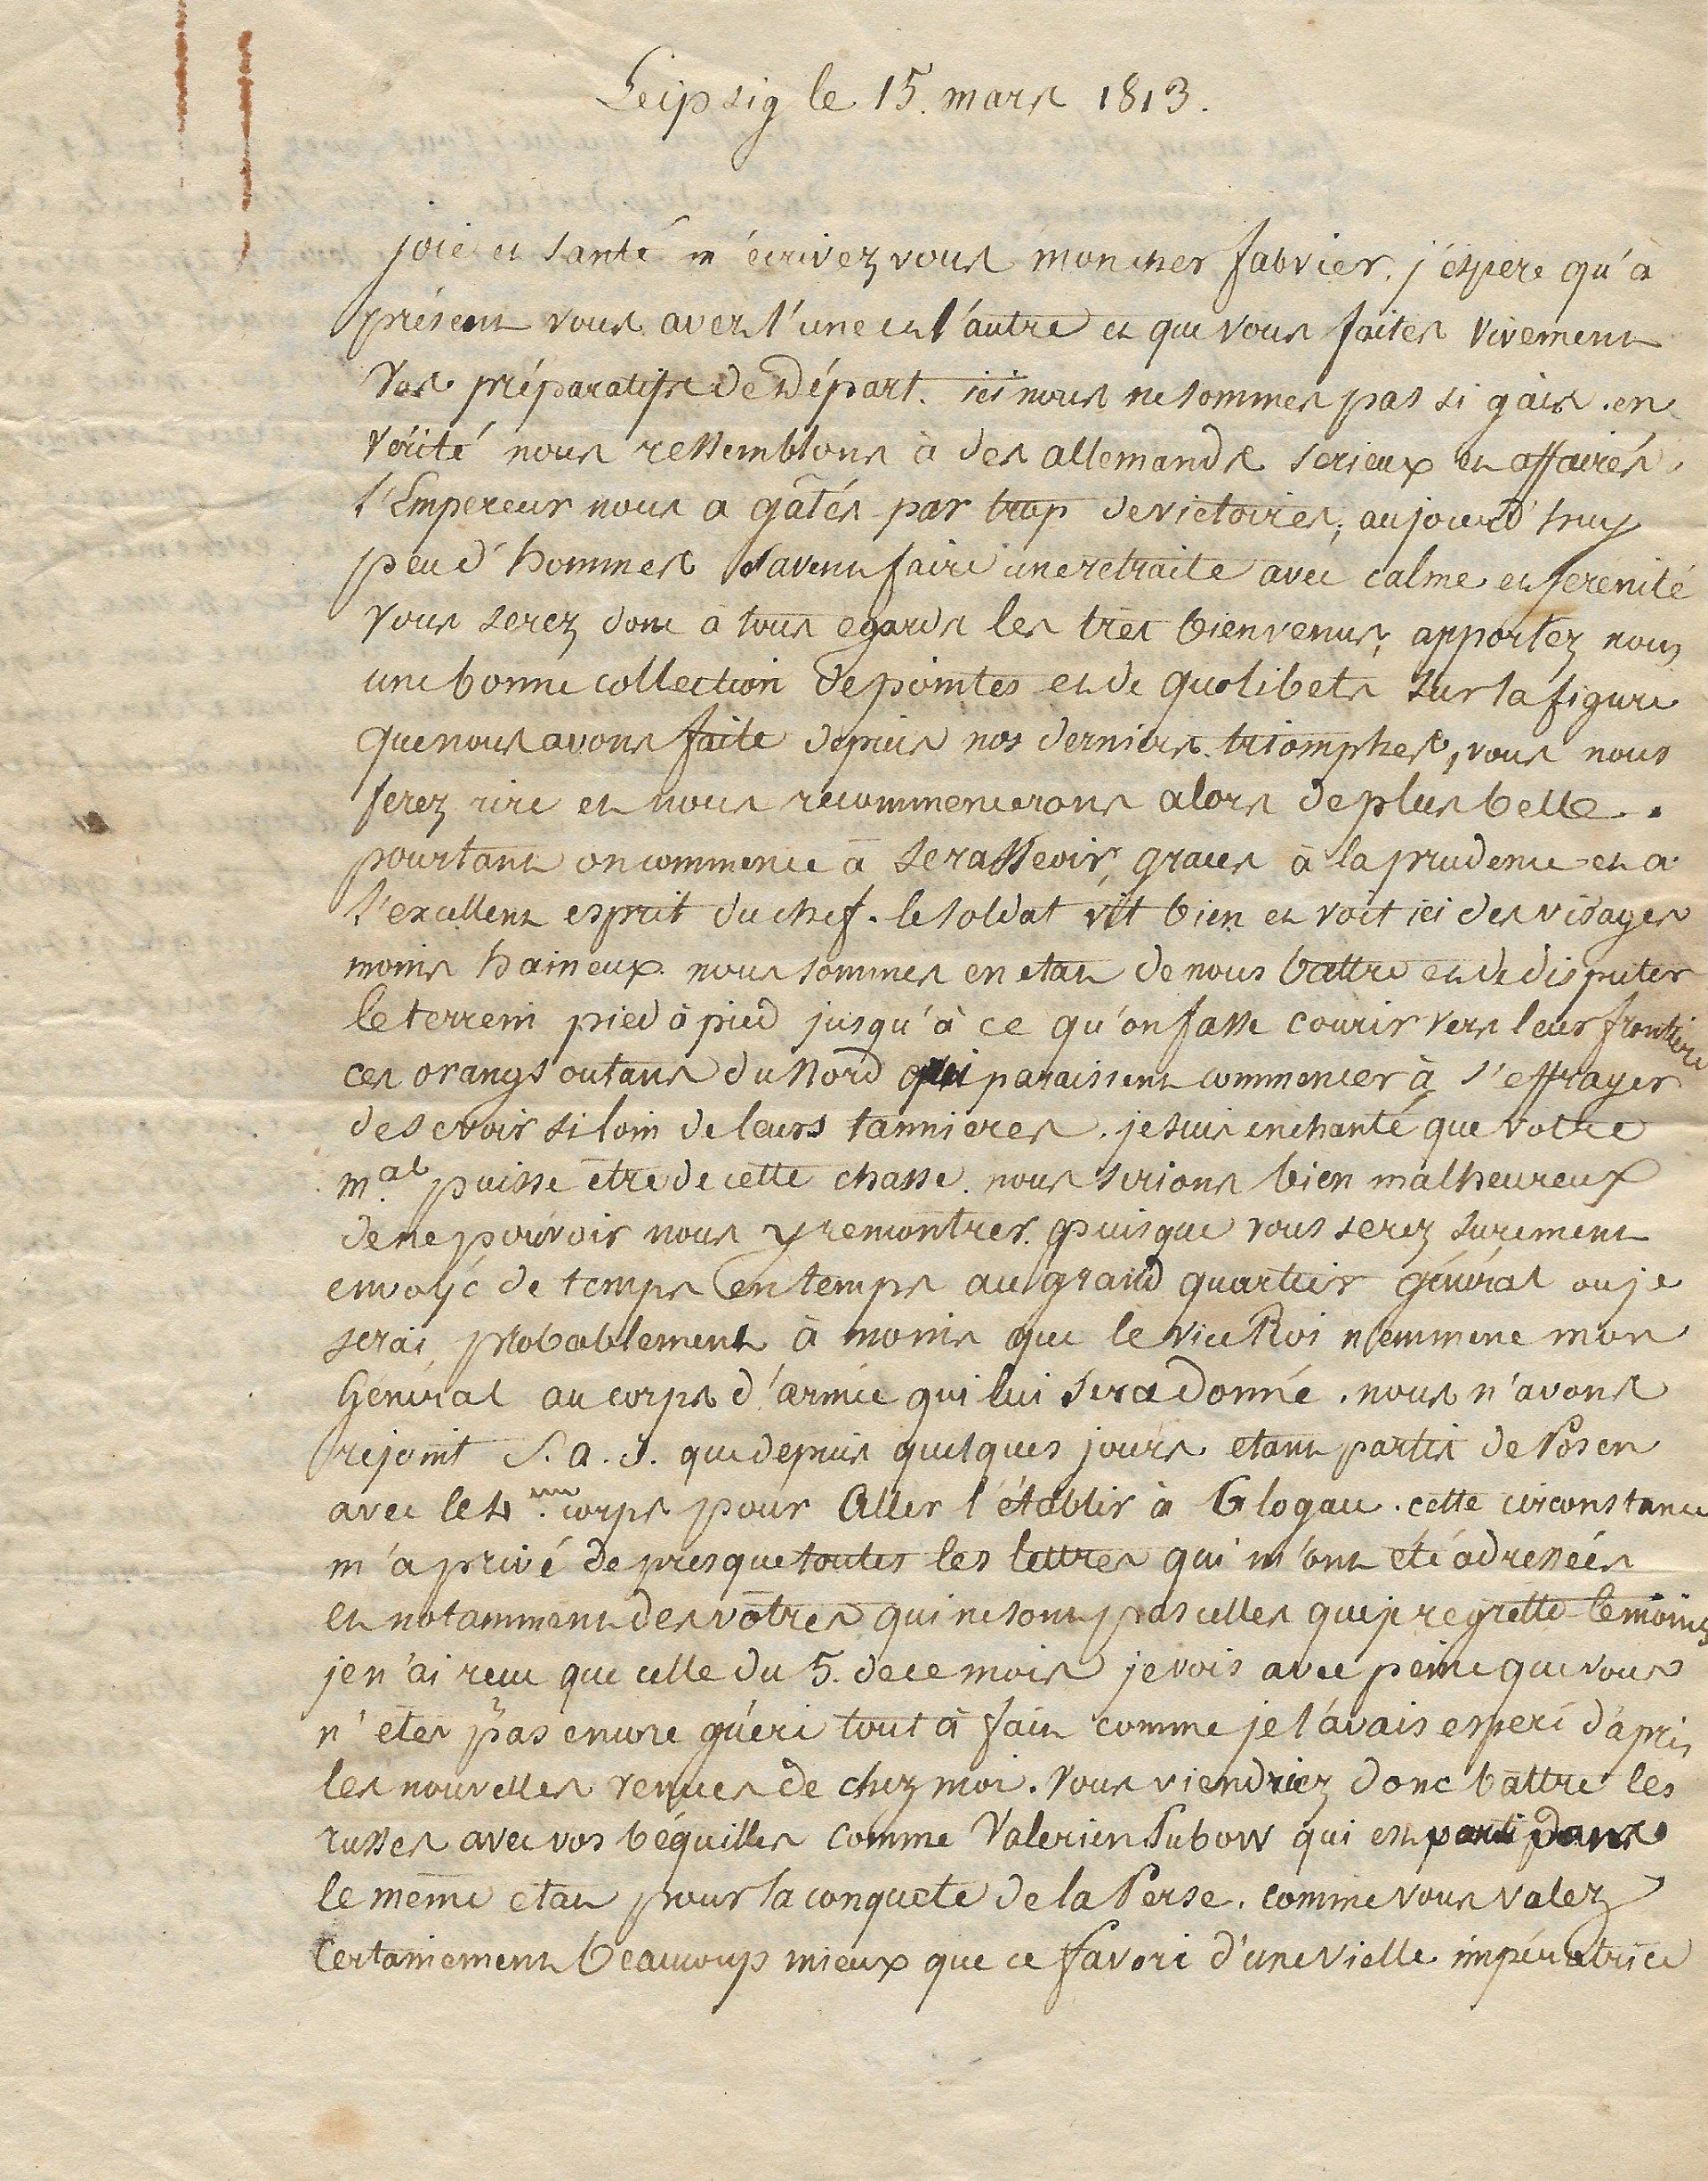 Leipsig le 15. mars 1813.
joie et santé m'écrivez vous mon cher fabvier. j'éspere qu'à
présent vous avez l'une et l'autre et que vous faites vivement
vos préparatifs de départ. ici nous ne sommes pas si gais. en
vérité nous ressemblons à des allemands serieux et affairés,
l'Empereur nous a gâtés par trop de victoires; aujourd'huy
peu d'hommes savent faire une retraite avec calme et serenité
vous serez donc à tous egards les très bien venus; apportez nous
une bonne collection de pointes et de quolibets sur la figure
que nous avons faite depuis nos derniers triomphes, vous nous
ferez rire et nous recommencerons alors de plus belle.
pourtant on commence à se rasseoir, graces à la prudence et a
l'excellent esprit du chef. le soldat vit bien et voit ici des visages
moins haineux. nous sommes en etat de nous battre et de disputer
le terrein pied à pied jusqu'à ce qu'on fasse courir vers leur frontiere
ces orangs outans du Nord qui paraissent commencer à s'effrayer
de se voir si loin de leurs tannieres. je suis enchanté que votre
m.al puisse etre de cette chasse. nous serions bien malheureux
de ne pouvoir nous y rencontrer. puisque vous serez surement
envoyé de temps en temps au grand quartier général ou je
serai probablement à moins que le vice Roi n'emmene mon
Général au corps d'armée qui lui sera donné. nous n'avons
rejoint S. a. J. que depuis quelques jours etant partis de Posen
avec le 4.eme corps pour aller l'établir à Glogau. cette circonstance
m'a privé de presque toutes les lettres qui m'ont été adressées
et notamment des vôtres qui ne sont pas celles que je regrette le moins
je n'ai recu que celle du 5. de ce mois je vois avec peine que vous
n'etes pas encore guéri tout à fait comme je l'avais esperé d'après
les nouvelles venues de chez moi. vous viendriez donc battre les
russes avec vos béquilles comme Valerien Subow qui est parti dans
le même etat pour la conquete de la Perse. comme vous valez
certainement beaucoup mieux que ce favori d'une vielle impératrice